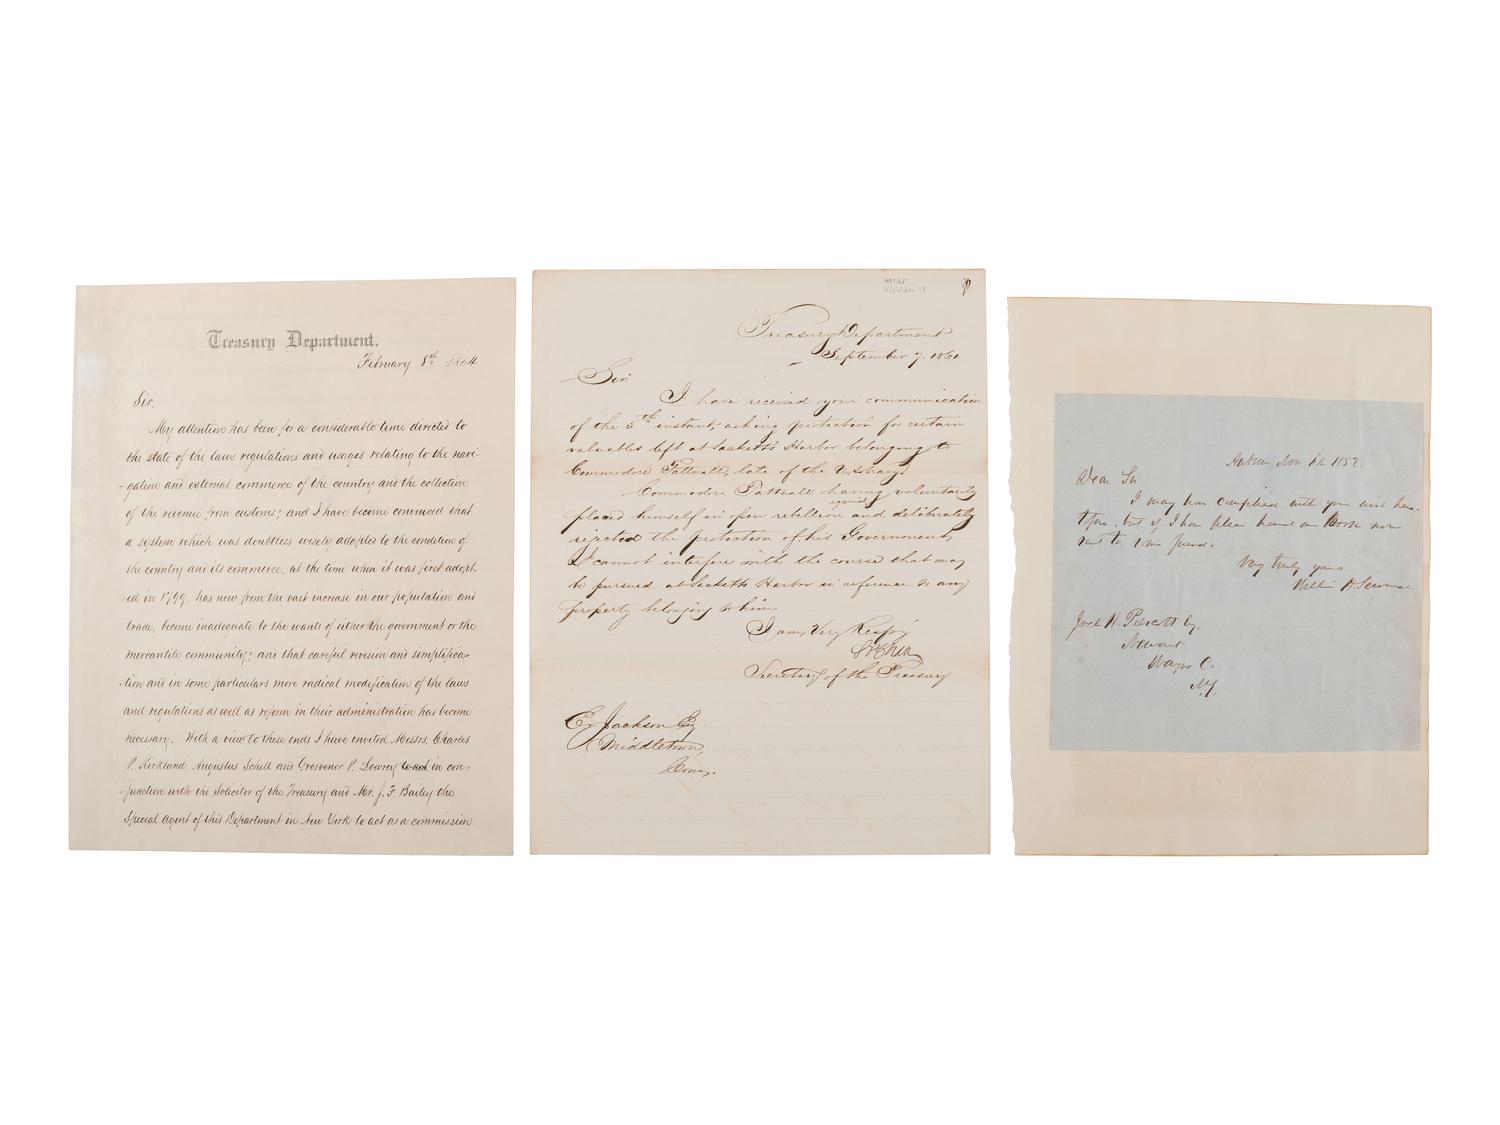 Treasury Department.
February 8th 1864
Sir,
My attention has been for a considerable time directed to
the state of the laws regulations and usages relating to the navi-
gation and external commerce of the country and the collection
of the revenue from customs; and I have become convinced that
a system which was doubtless wisely adapted to the condition of
the country and its commerce, at the time when it was first adopt-
ed in 1799, has now from the vast increase in our population and
trade, become inadequate to the wants of either the government or the
mercantile community; and that careful revision and simplifica-
tion and in some particulars more radical modification of the laws
and regulations as well as reform in their administration has become
necessary. With a view to these ends I have invited Messrs. Charles
P. Kirkland, Augustus Schell and Grosvenor P. Lowrey to act in con-
junction with the Solicitor of the Treasury and Mr. J. F. Bailey the
Special Agent of this Department in New York to act as a commission
Treasury Department
September 7. 1861
Sir
I have received your communication
of the 5th instant, asking protection for certain
valuables left at Sacketts Harbor belonging to
Commodore Tattnall, late of the U.S. Navy.
Commodore Tattnall having voluntarily
placed himself in open rebellion against and deliberately
rejected the protection of his Government,
I cannot interfere with the course that may
be pursued at Sacketts Harbor in reference to any
property belonging to him.
I am, Very Respy
SPChase
Secretary of the Treasury
E. Jackson Esq.
Middletown,
Conn.
Auburn Nov 1852.
Dear Sir
I may have complied with your wish here-
tofore, but if I have please hand an now
sent to some friend.
Very truly yours
William H. Seward
Joel H. Prescott Esq.
Newark
Wayne Co.
NY